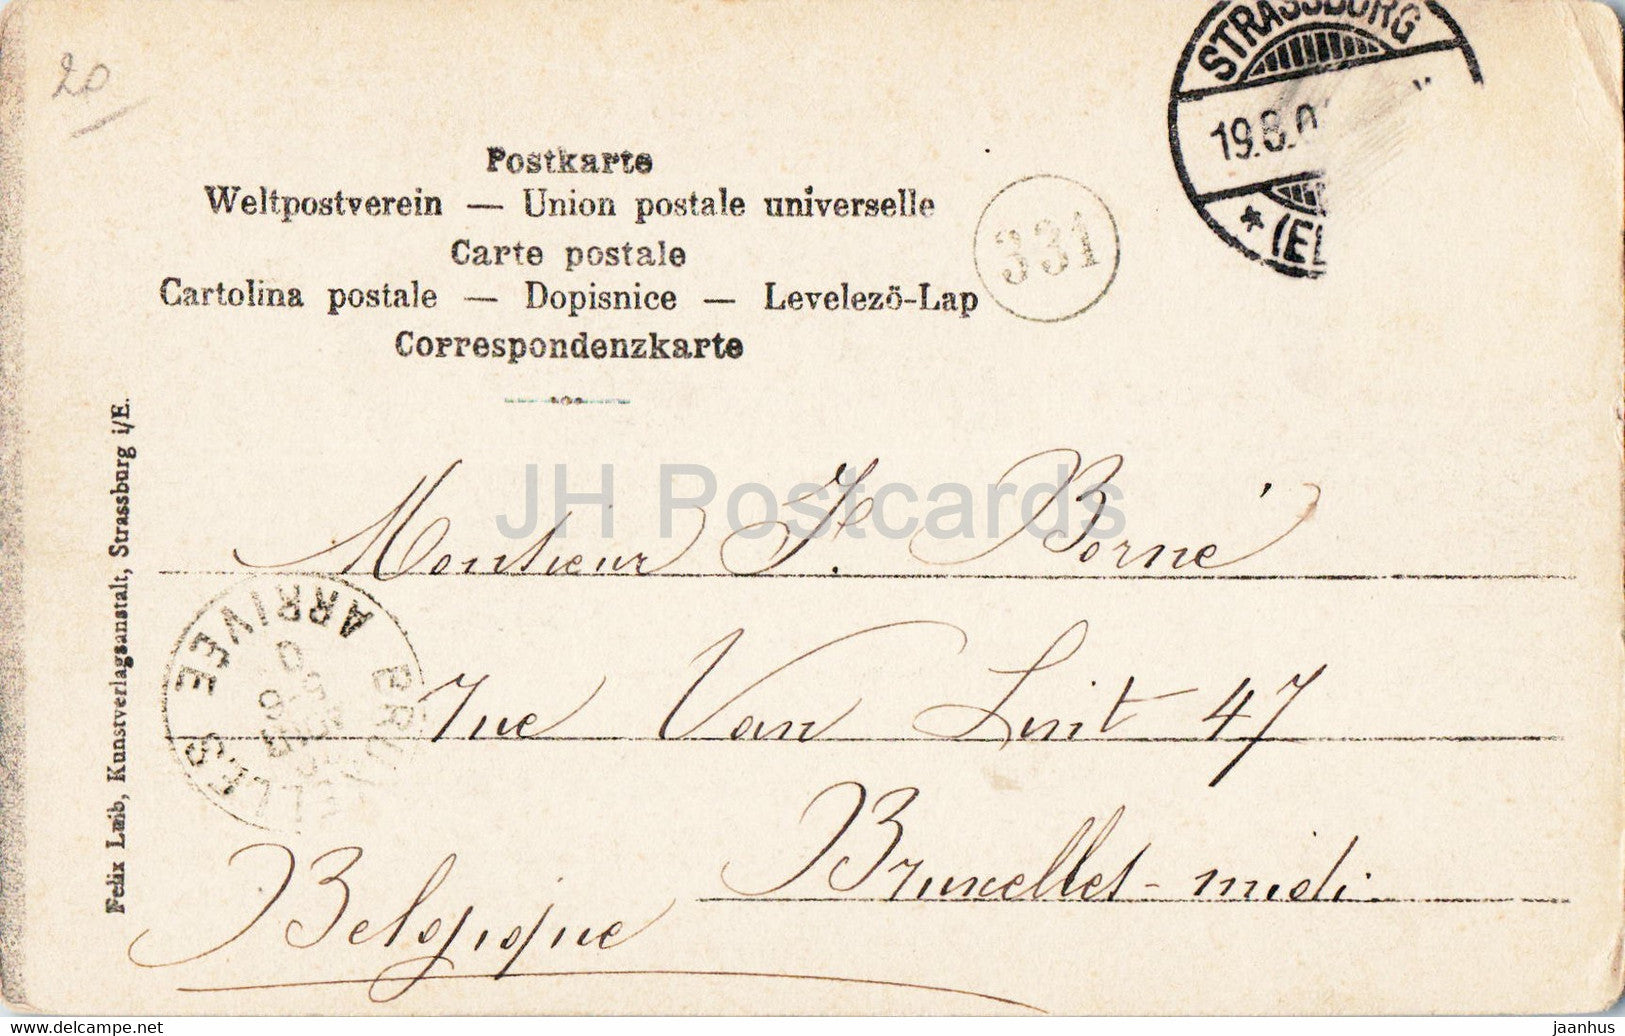 20
STRASSBURG
19.8.0
* (EL
Postkarte
Weltpostverein — Union postale universelle
331
Carte postale
Cartolina postale — Dopisnice — Levelező-Lap
Correspondenzkarte
JH Postcards
Monsieur J. Borné
rue Van Lint 47
Bruxelles-midi
Belgique
BRUXELLES
ARRIVEE
Felix Luib, Kunstverlagsanstalt, Strassburg i/E.
https://www.delcampe.net
jaanhus